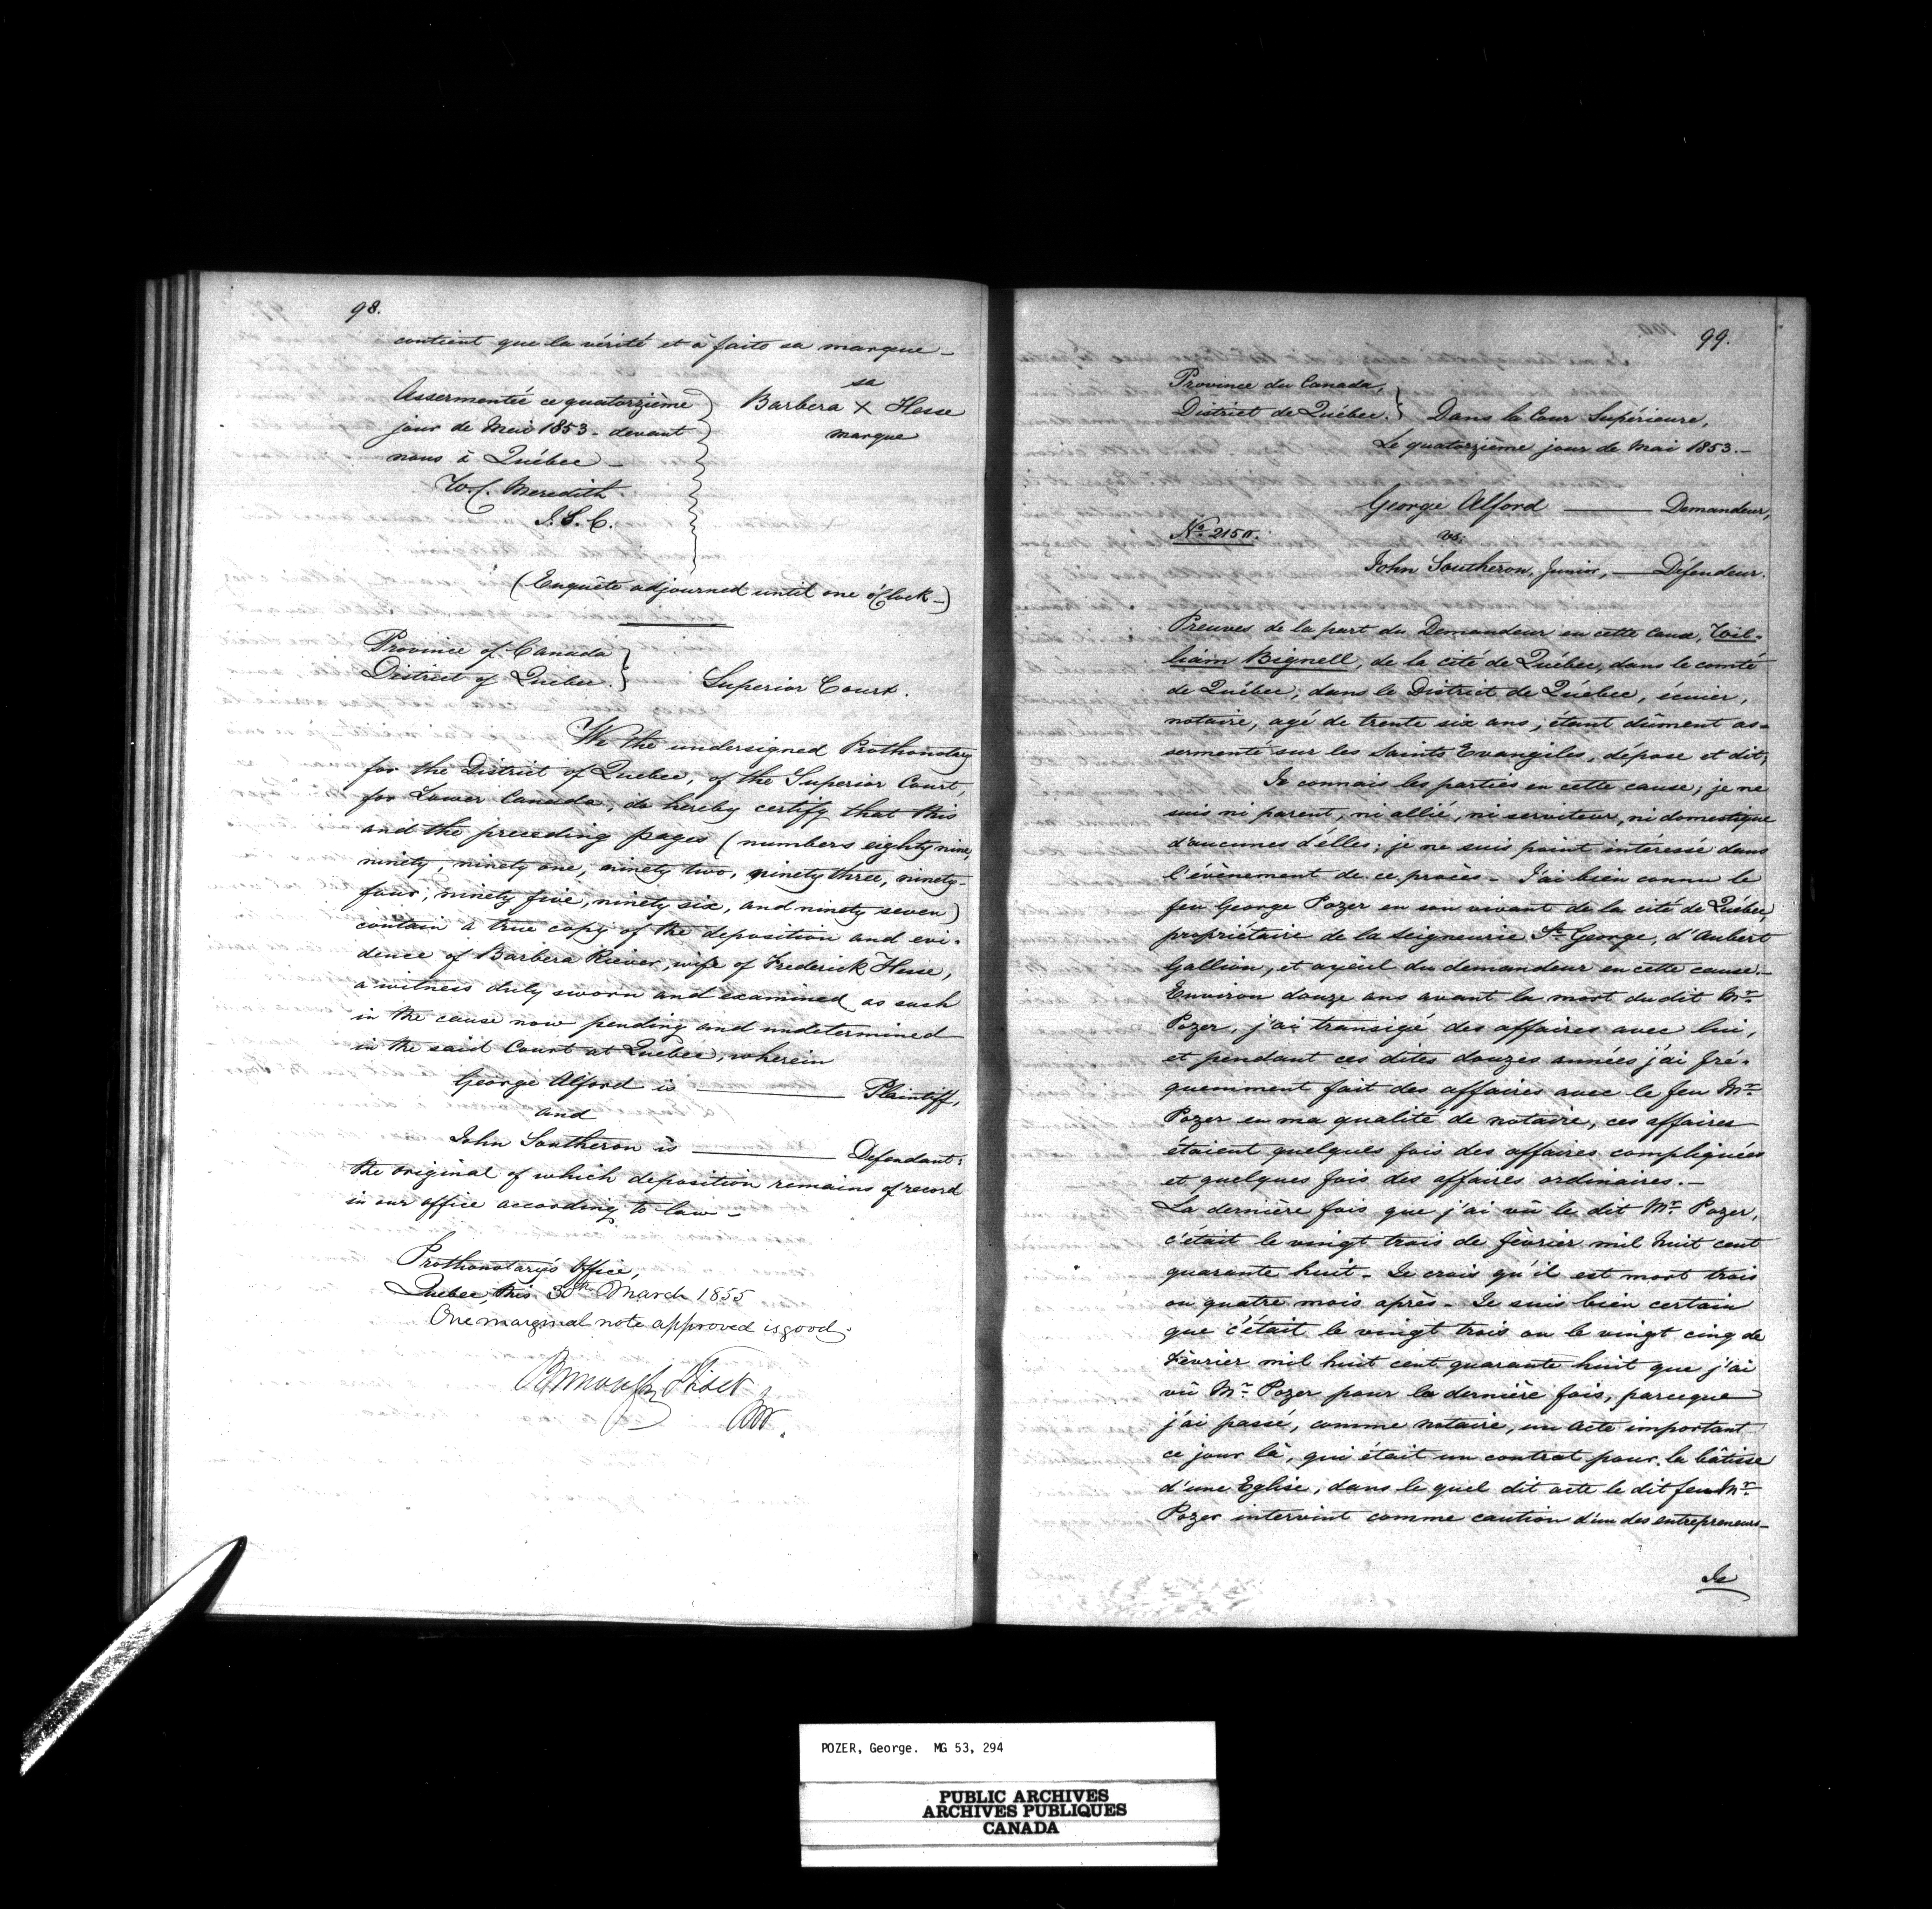 98.
contient que la vérité et à faits sa marque _
Assermentée ce quatorzième
jour de Mai 1853. devant
nous à Québec _
W. C. Meredith.
J. S. C.
sa
Barbera X Hesse
marque
(Enquête adjourned until one o'Clock _)
Province of Canada
District of Quebec. } Superior Court.
We the undersigned Prothonotary
for the District of Quebec, of the Superior Court,
for Lower Canada, do hereby certify that this
and the preceding pages (numbers eighty nine,
ninety, ninety one, ninety two, ninety three, ninety-
four, ninety five, ninety six, and ninety seven)
contain a true copy of the deposition and evi-
dence of Barbera Riever, wife of Frederick Hesse,
a witness duly sworn and examined as such
in the cause now pending and undetermined
in the said Court at Quebec, wherein
George Alford is ——— Plaintiff,
and
John Southeron is ——— Defendant:
the original of which deposition remains of record
in our office according to law _
Prothonotary's Office,
Quebec, this 30th March 1855
One marginal note approved is good.
99.
Province du Canada,
District de Québec. } Dans la Cour Supérieure,
Le quatorzième jour de Mai 1853. _
George Alford ——— Demandeur,
No. 2150. vs:
John Southeron, Junior, — Défendeur.
Preuves de la part du Demandeur en cette Cause, Wil-
liam Bignell, de la cité de Québec, dans le comté
de Québec, dans le District de Québec, écuier,
notaire, agé de trente six ans, étant dûment as-
sermenté sur les Saints Evangiles, dépose et dit;
Je connais les parties en cette cause; je ne
suis ni parent, ni allié, ni serviteur, ni domestique
d'aucunes d'élles; je ne suis point intéressé dans
l'évènement de ce procès _ J'ai bien connu le
feu George Pozer en son vivant de la cité de Québec,
propriétaire de la Seigneurie St George, d'Aubert
Gallion, et ayëul du demandeur en cette cause. _
Environ douze ans avant la mort du dit Mr
Pozer, j'ai transigé des affaires avec lui,
et pendant ces dites douzes années j'ai fré-
quemment fait des affaires avec le feu Mr
Pozer en ma qualité de notaire, ces affaires
étaient quelques fois des affaires compliquées
et quelques fois des affaires ordinaires. _
La dernière fois que j'ai vû le dit Mr Pozer,
c'était le vingt trois de février mil huit cent
quarante huit _ Je crois qu'il est mort trois
ou quatre mois après _ Je suis bien certain
que c'était le vingt trois ou le vingt cinq de
Février mil huit cent quarante huit que j'ai
vû Mr Pozer pour la dernière fois, parceque
j'ai passé, comme notaire, un acte important
ce jour là, qui était un contrat pour la bâtisse
d'une Eglise, dans le quel dit acte le dit feu Mr
Pozer intervint comme caution d'un des entrepreneurs _
Je
POZER, George. MG 53, 294
PUBLIC ARCHIVES
ARCHIVES PUBLIQUES
CANADA